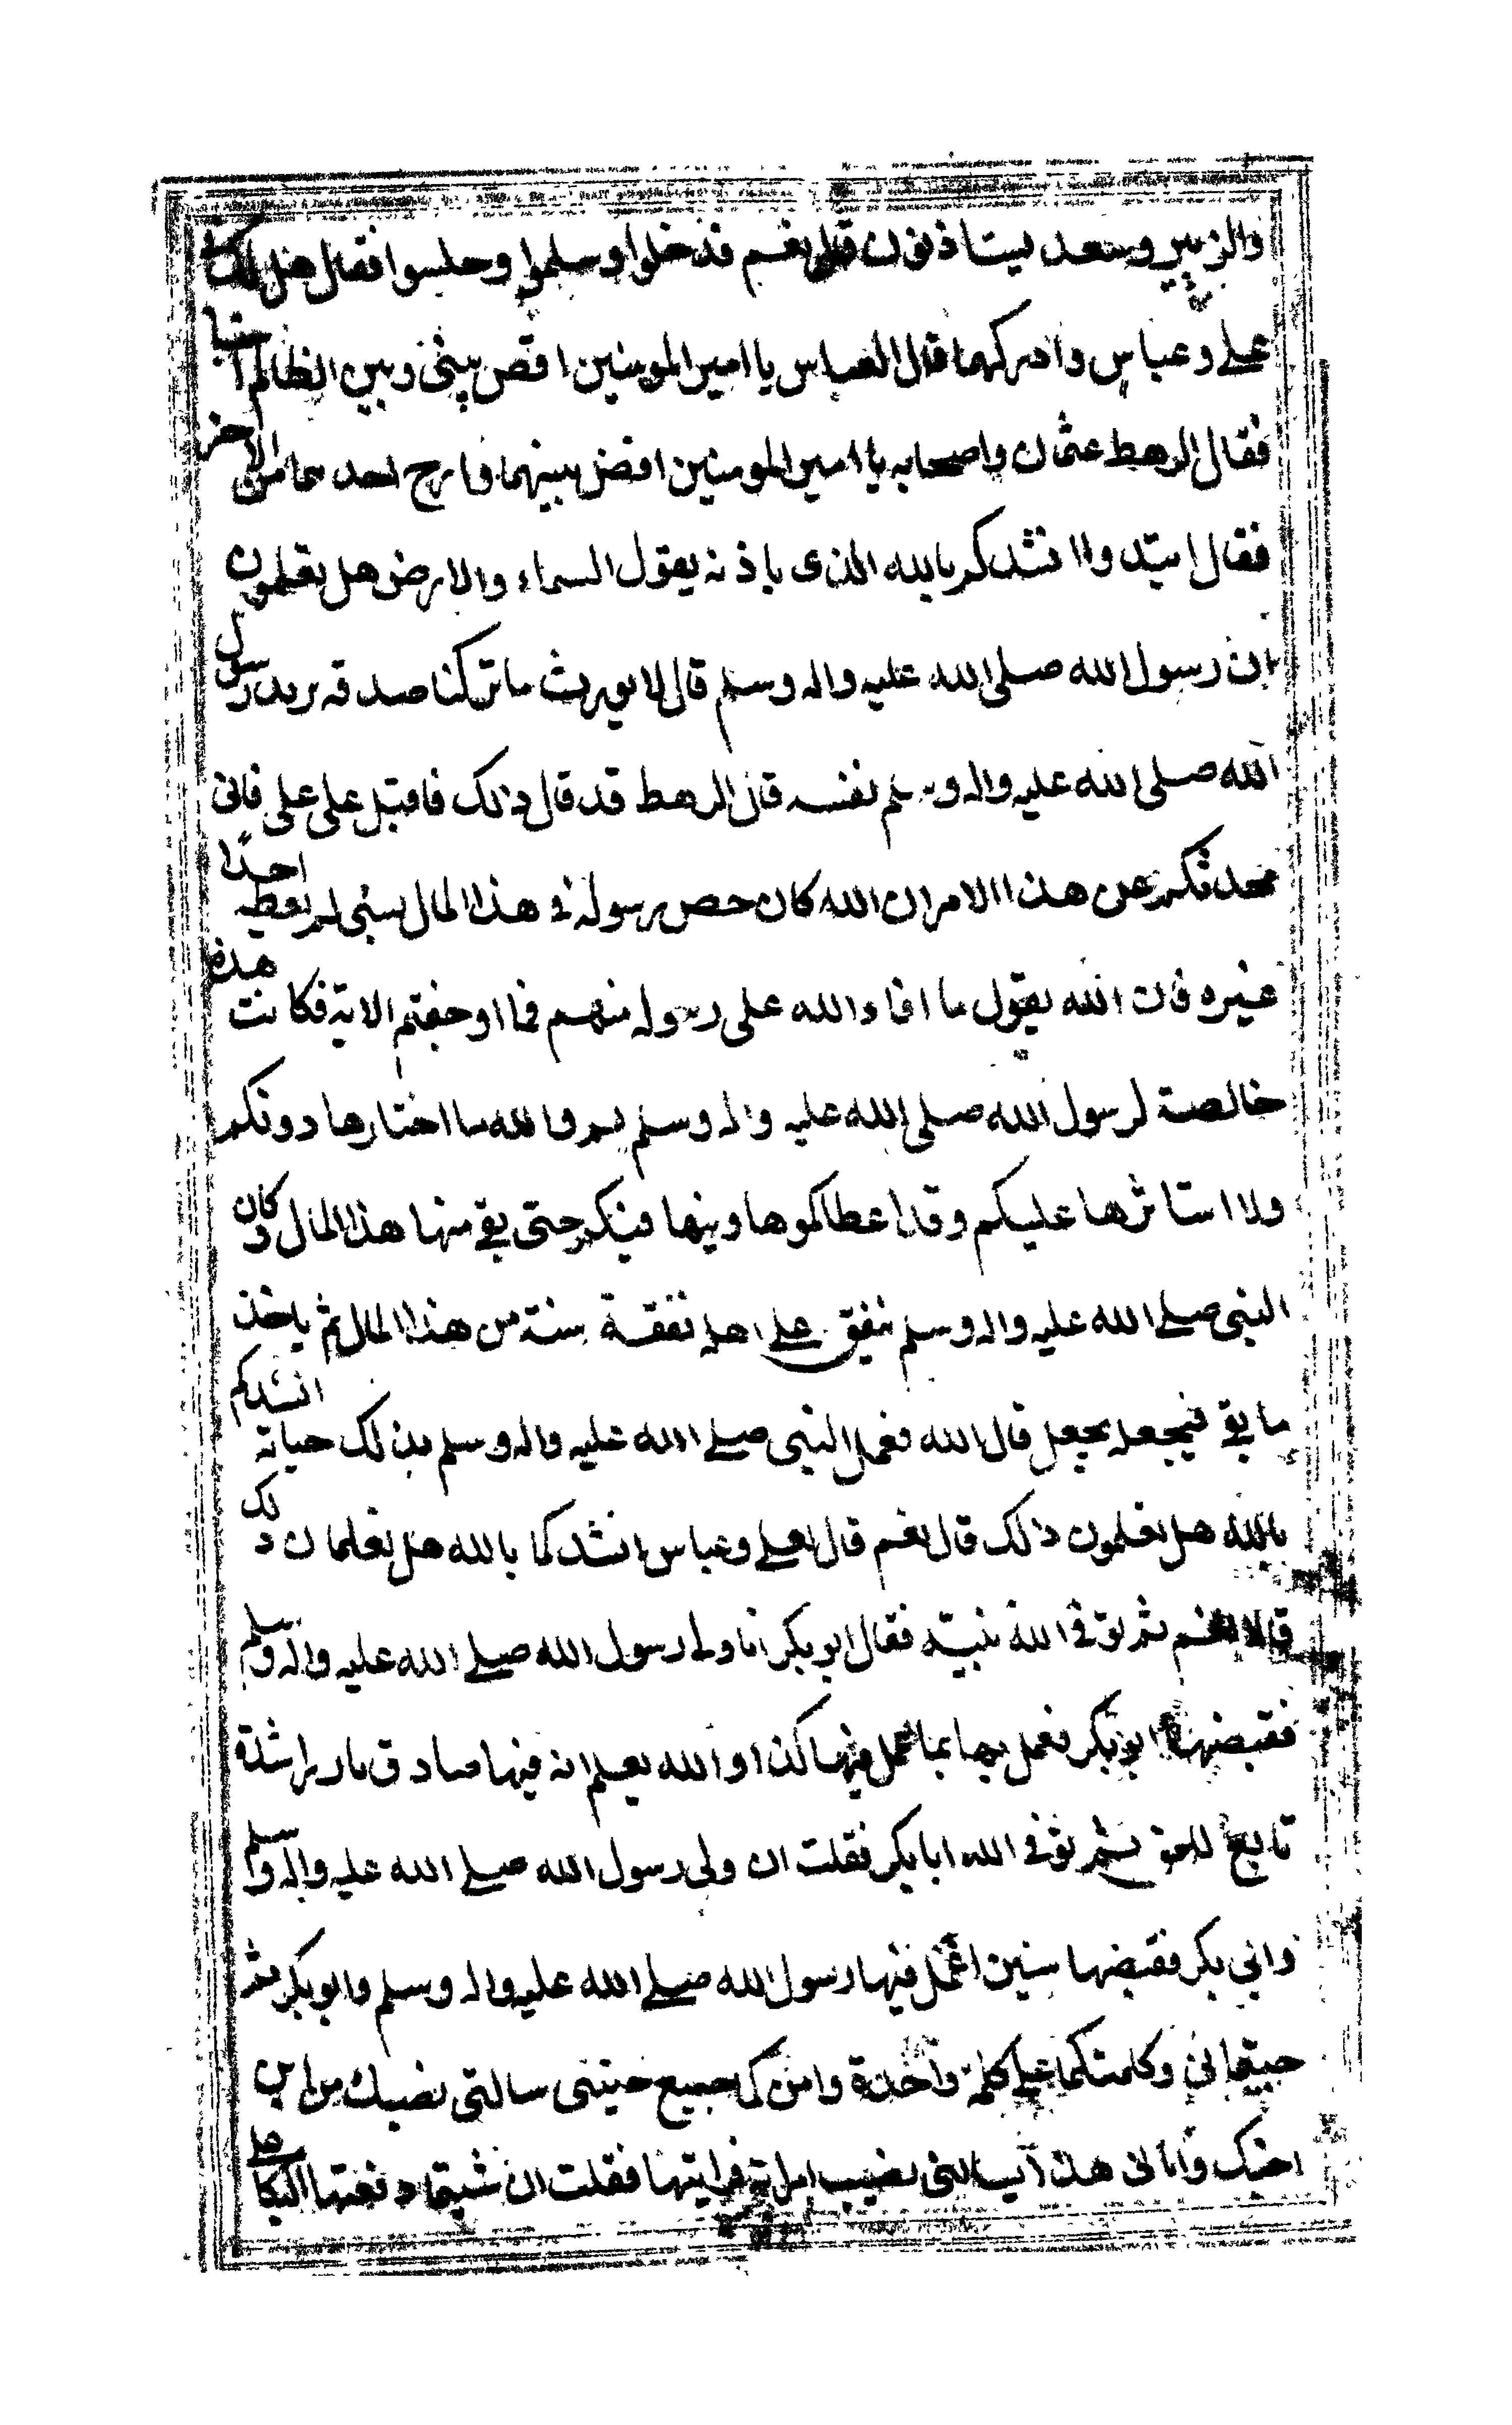 والزبير وسعد يستاذنون قال نعم فدخلوا وسلموا وجلسوا فقال هل لك
علي وعباس وادركهما قال العباس يا امير المومنين اقض بيني وبين الظالم اخنا
فقال الرهط عثمان واصحابه يا امير المومنين اقض بينهما وارح احدهما من الاخر
فقال اتيد واا نشدكم بالله الذى باذنه يقول السماء والارض هل يعلمون
ان رسول الله صلى الله عليه واله وسلم قال لا يورث ما تركنا صدقه يريد رسول
الله صلى الله عليه واله وسلم نفسه قال الرهط قد قال ذلك فاقبل على على فانى
محدثكم عن هذا الامر ان الله كان خص رسوله في هذا المال بشي لم يعطيه احدًا
غيره فان الله يقول ما افاء الله على رسوله منهم فما اوجفتم الاية فكانت هذه
خالصة لرسول الله صلى الله عليه واله وسلم ثم والله ما اختارها دونكم
ولا استاثرها عليكم وقد اعطاكموها وبثها فيكم حتى بقي منها هذا المال وكان
النبى صلے الله عليه واله وسلم ينفق على اهله نفقة سنة من هذا المال ثم ياخذ
ما بقي فيجعله بجعل قال الله فعمل النبى صلے الله عليه واله وسلم بذلك حياته انشدكم
بالله هل يعلمون ذلك قال نعم قال لعلے وعباس انشدكما بالله هل يعلمان ذلك
قالا نعم ثم توفى الله نبيّه فقال ابو بكر انا ولى رسول الله صلے الله عليه واله وسلم
فقبضها ابو بكر فعمل بها بما عمل فيها كذا والله يعلم انه فيها صادق بار راشدة
تابع للحق ثم توفى الله ابا بكر فقلت ان ولى رسول الله صلے الله عليه واله وسلم
وابي بكر فقبضها سنين اعمل فيها رسول الله صلے الله عليه واله وسلم وابو بكر ثم
جيتمانى وكلمتكما علے كلمة واحدة وامركما جميع جيتنى سالتى نصيبك من ابن
اخيك واتانى هذا يسالنى نصيب امراته فرايتها فقلت ان شيتما دفعتها اليكما